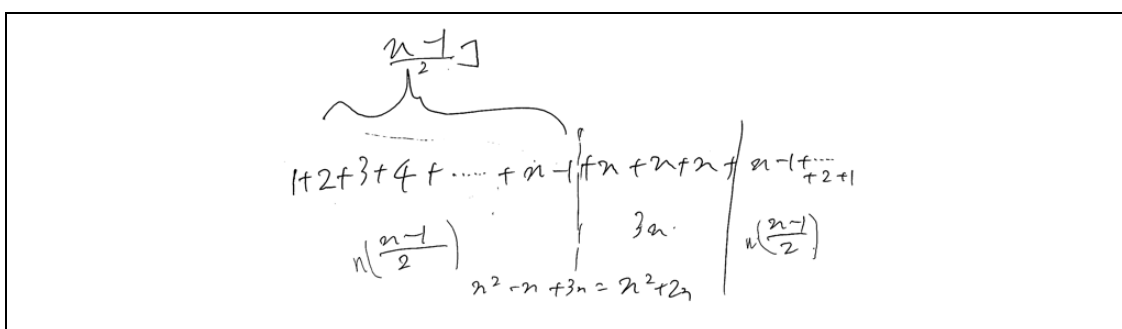 n-1/2 ]
1+2+3+4+.....+n-1+n+n+n+n-1+....+2+1
n(n-1/2) 3n. n(n-1/2)
n²-n+3n = n²+2n